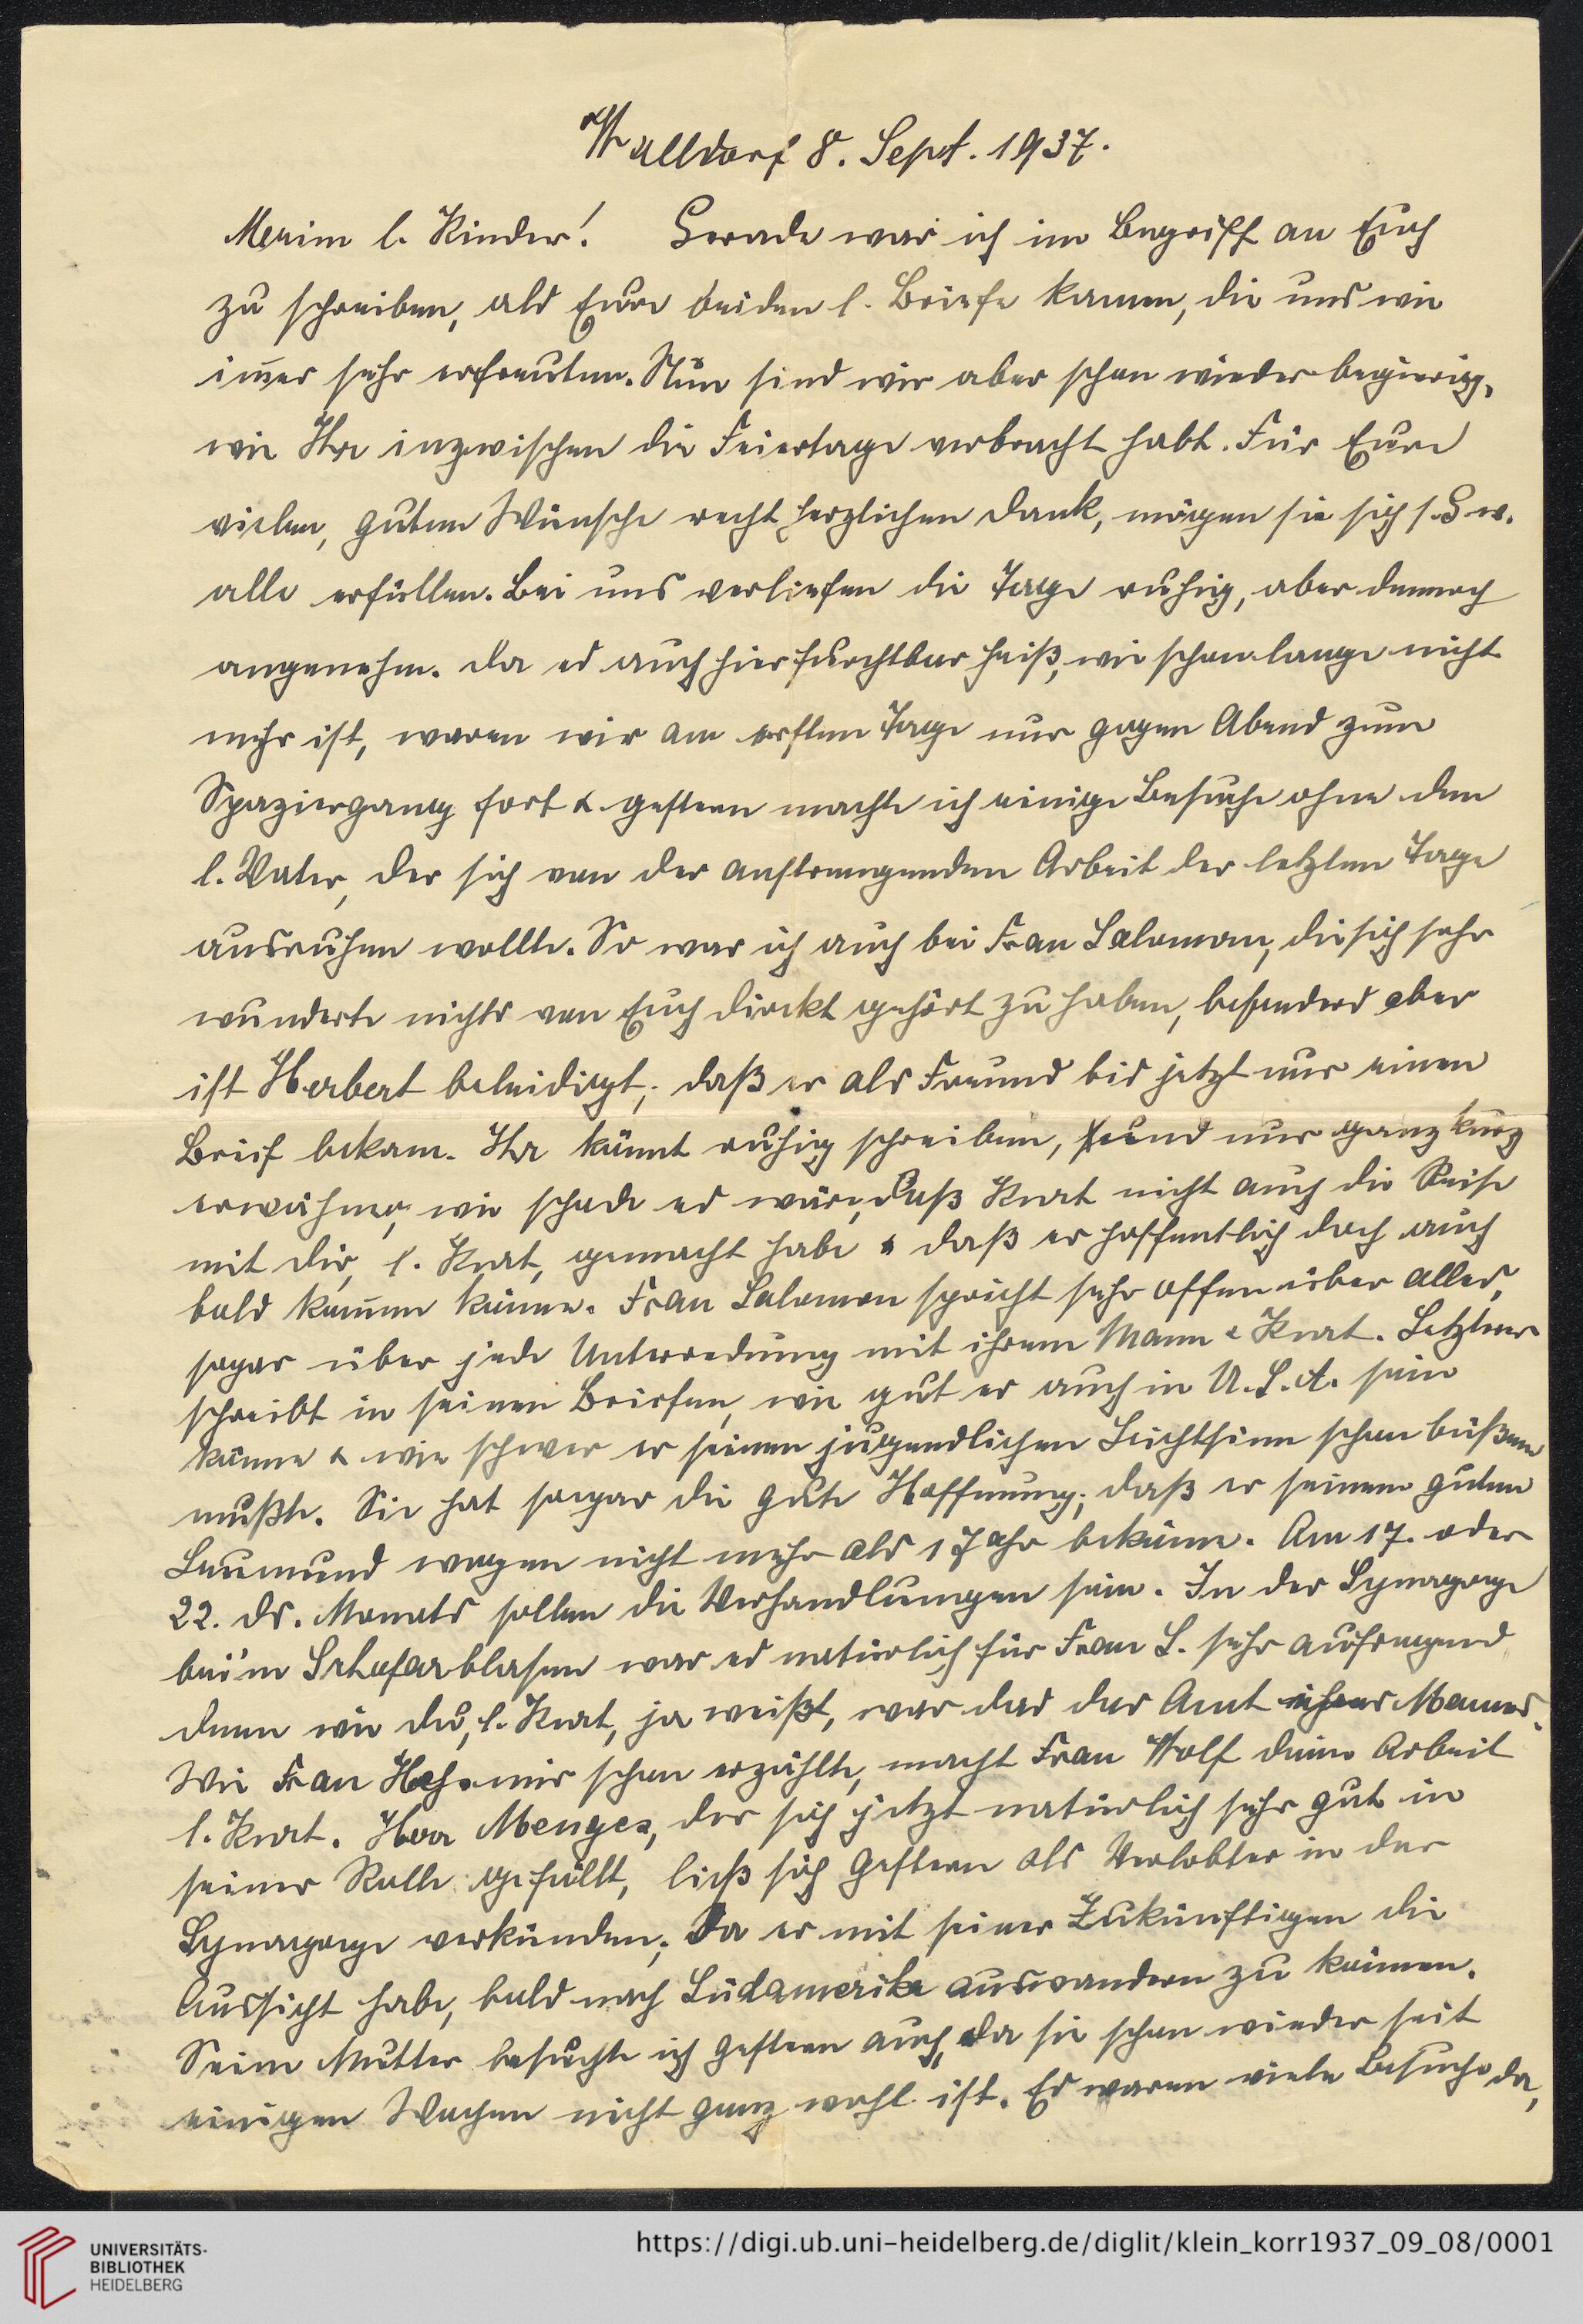 Walldorf 8. Sept. 1937.
Meine l. Kinder! Gerade war ich im Begriff an Euch
zu schreiben, als Eure beiden l. Briefe kamen, die uns wie
im̅er sehr erfreuten. Nun sind wir aber schon wieder begierig,
wie Ihr inzwischen die Feiertage verbracht habt. Für Eure
vielen, guten Wünsche recht herzlichen Dank, mögen sie sich s. G. w.
alle erfüllen. Bei uns verliefen die Tage ruhig, aber dennoch
angenehm. Da es auch hier furchtbar heiß, wie schon lange nicht
mehr ist, waren wir am ersten Tage nur gegen Abend zum
Spaziergang fort & gestern machte ich einige Besuche ohne den
l. Vater, der sich von der anstrengenden Arbeit der letzten Tage
ausruhen wollte. So war ich auch bei Frau Salomon, die sich sehr
wunderte nichts von Euch direkt gehört zu haben, besonders aber
ist Herbert beleidigt, daß er als Freund bis jetzt nur einen
Brief bekam. Ihr könnt ruhig schreiben, und nur ganz kurz
erwähnen, wie schade es wäre, daß Kurt nicht auch die Reise
mit dir, l. Kurt, gemacht habe & daß er hoffentlich doch auch
bald kom̅en könne. Frau Salomon spricht sehr offen über alles,
sogar über jede Unterredung mit ihrem Mann & Kurt. Letzterer
schreibt in seinen Briefen, wie gut er auch in U.S.A. sein
könne & wie schwer er seinen jugendlichen Leichtsinn schon büßen
mußte. Sie hat sogar die gute Hoffnung, daß er seinem guten
Leumund wegen nicht mehr als 1 Jahr bekäme. Am 17. oder
22. ds. Monats sollen die Verhandlungen sein. In der Synagoge
bei'm Schofarblasen war es natürlich für Frau S. sehr aufregend
denn wie du, l. Kurt, ja weißt, war das das Amt ihres Mannes.
Wie Frau Heh. mir schon erzählte, macht Frau Wolf deine Arbeit
l. Kurt. Herr Menges, der sich jetzt natürlich sehr gut in
seiner Rolle gefällt, ließ sich gestern als Verlobter in der
Synagoge verkünden, da er mit seiner Zukünftigen die
Aussicht habe, bald nach Südamerika auswandern zu können.
Seine Mutter besuchte ich gestern auch, da sie schon wieder seit
einigen Wochen nicht ganz wohl ist. Es waren viele Besuche da,
UNIVERSITÄTS-
BIBLIOTHEK
HEIDELBERG
https://digi.ub.uni-heidelberg.de/diglit/klein_korr1937_09_08/0001